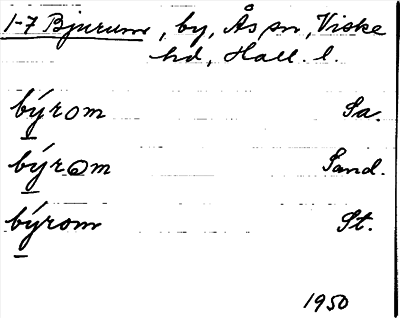 1-7 Bjurum, by, Ås sn, Viske
hd, Hall. l.
býrom Sa.
býrom Sand.
býrom St.
1950